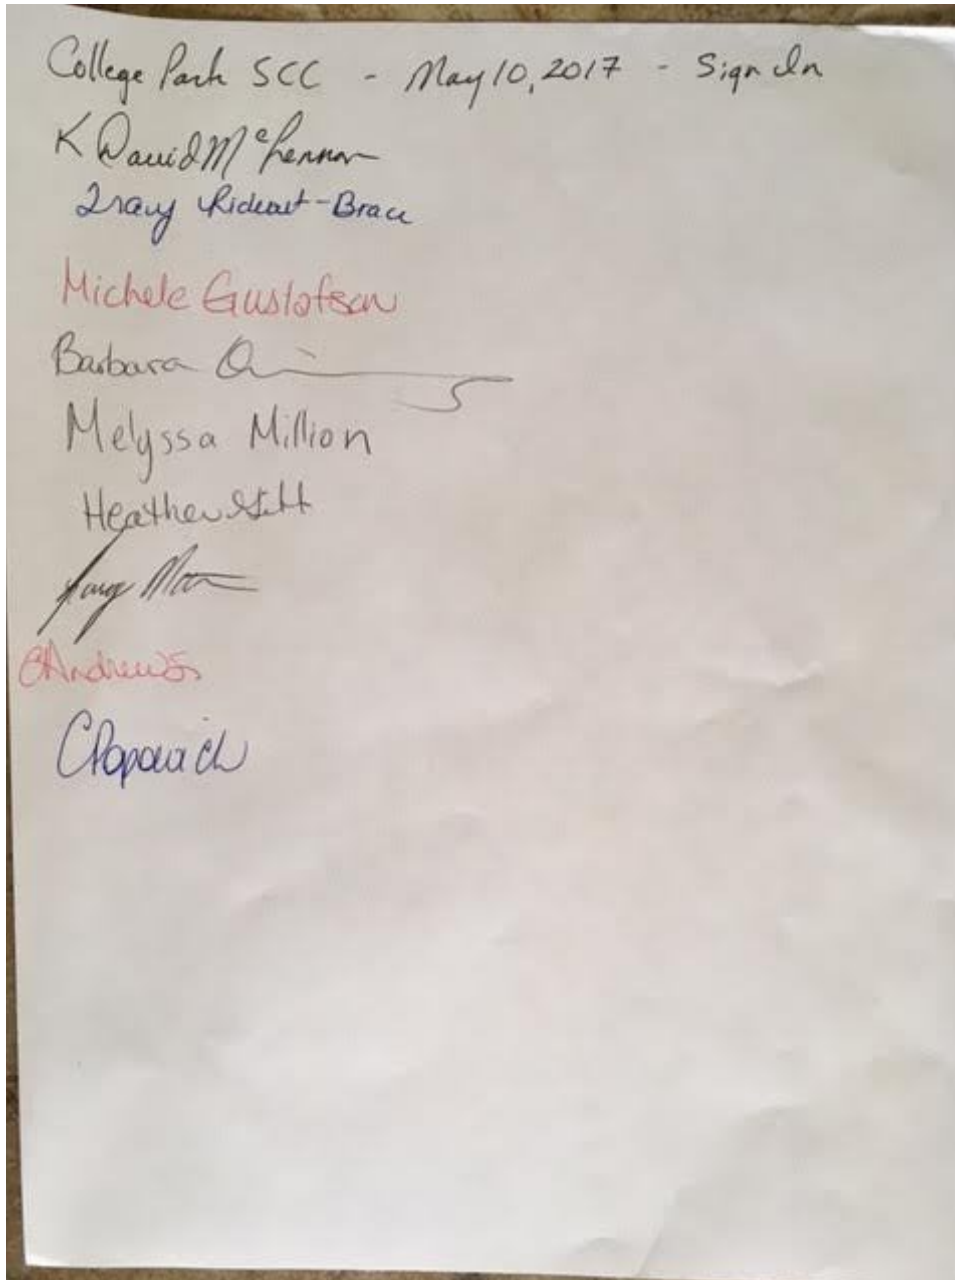 College Park SCC - May 10, 2017 - Sign In
K David McLennan
Tracy Rideout-Brace
Michele Gustafson
Barbara
Melyssa Million
Heather
C Popowich